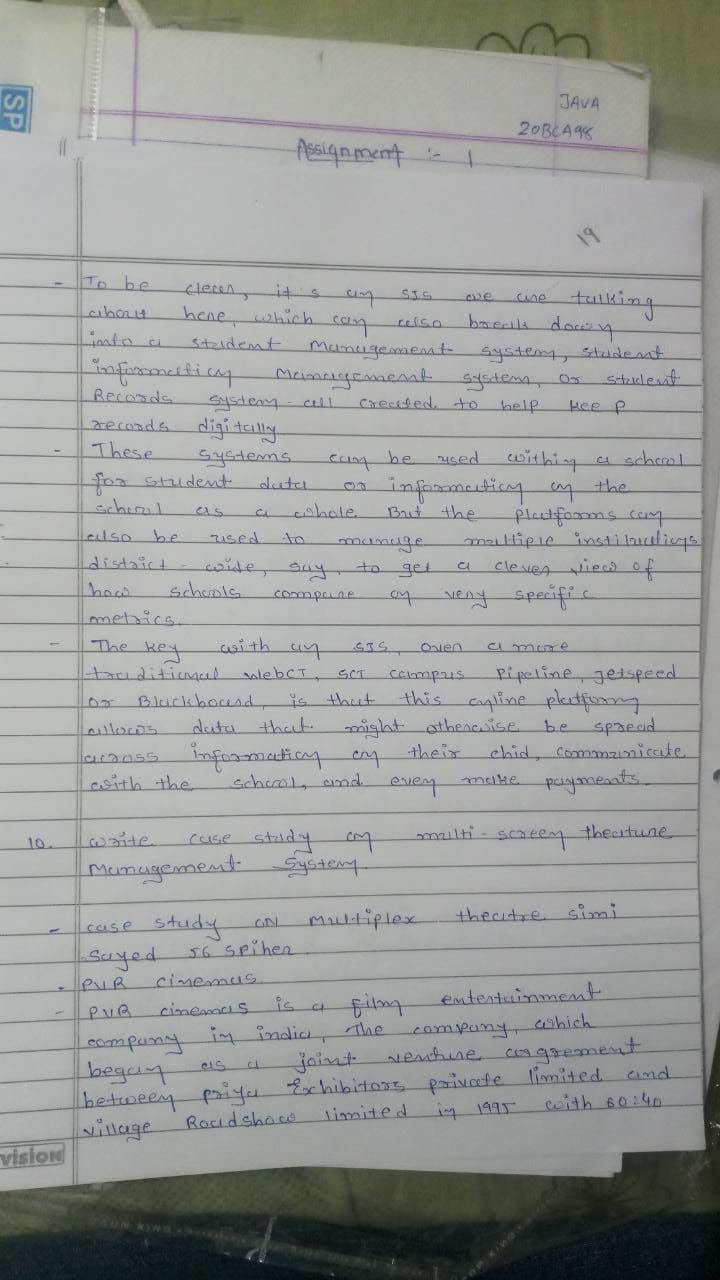 SP
JAVA
20BCA98
Assignment :- 1
19
- To be clear, it's an SIS we are talking
about here, which can also break down
into a student management system, student
information management system, or student
Records system - all created to help keep
records digitally
- These systems can be used within a school
for student data or information on the
school as a whole. But the platforms can
also be used to manage multiple institutions
district - wide, say, to get a clever view of
how schools compare on very specific
metrics.
- The key with an SIS, over a more
traditional WebCT, SCT campus Pipeline, jetspeed
or Blackboard, is that this online platform
allows data that might otherwise be spread
across information on their chid, communicate
with the school, and even make payments.
10. write case study on multi-screen theature
Management System.
- case study on Multiplex theatre simi
Sayed 56 Spiher
- PVR cinemas
- PVR cinemas is a film entertainment
company in india, The company, which
began as a joint venture aggrement
between priya Exhibitors private limited and
village Roadshow limited in 1995 with 60:40
vision
SUN KING